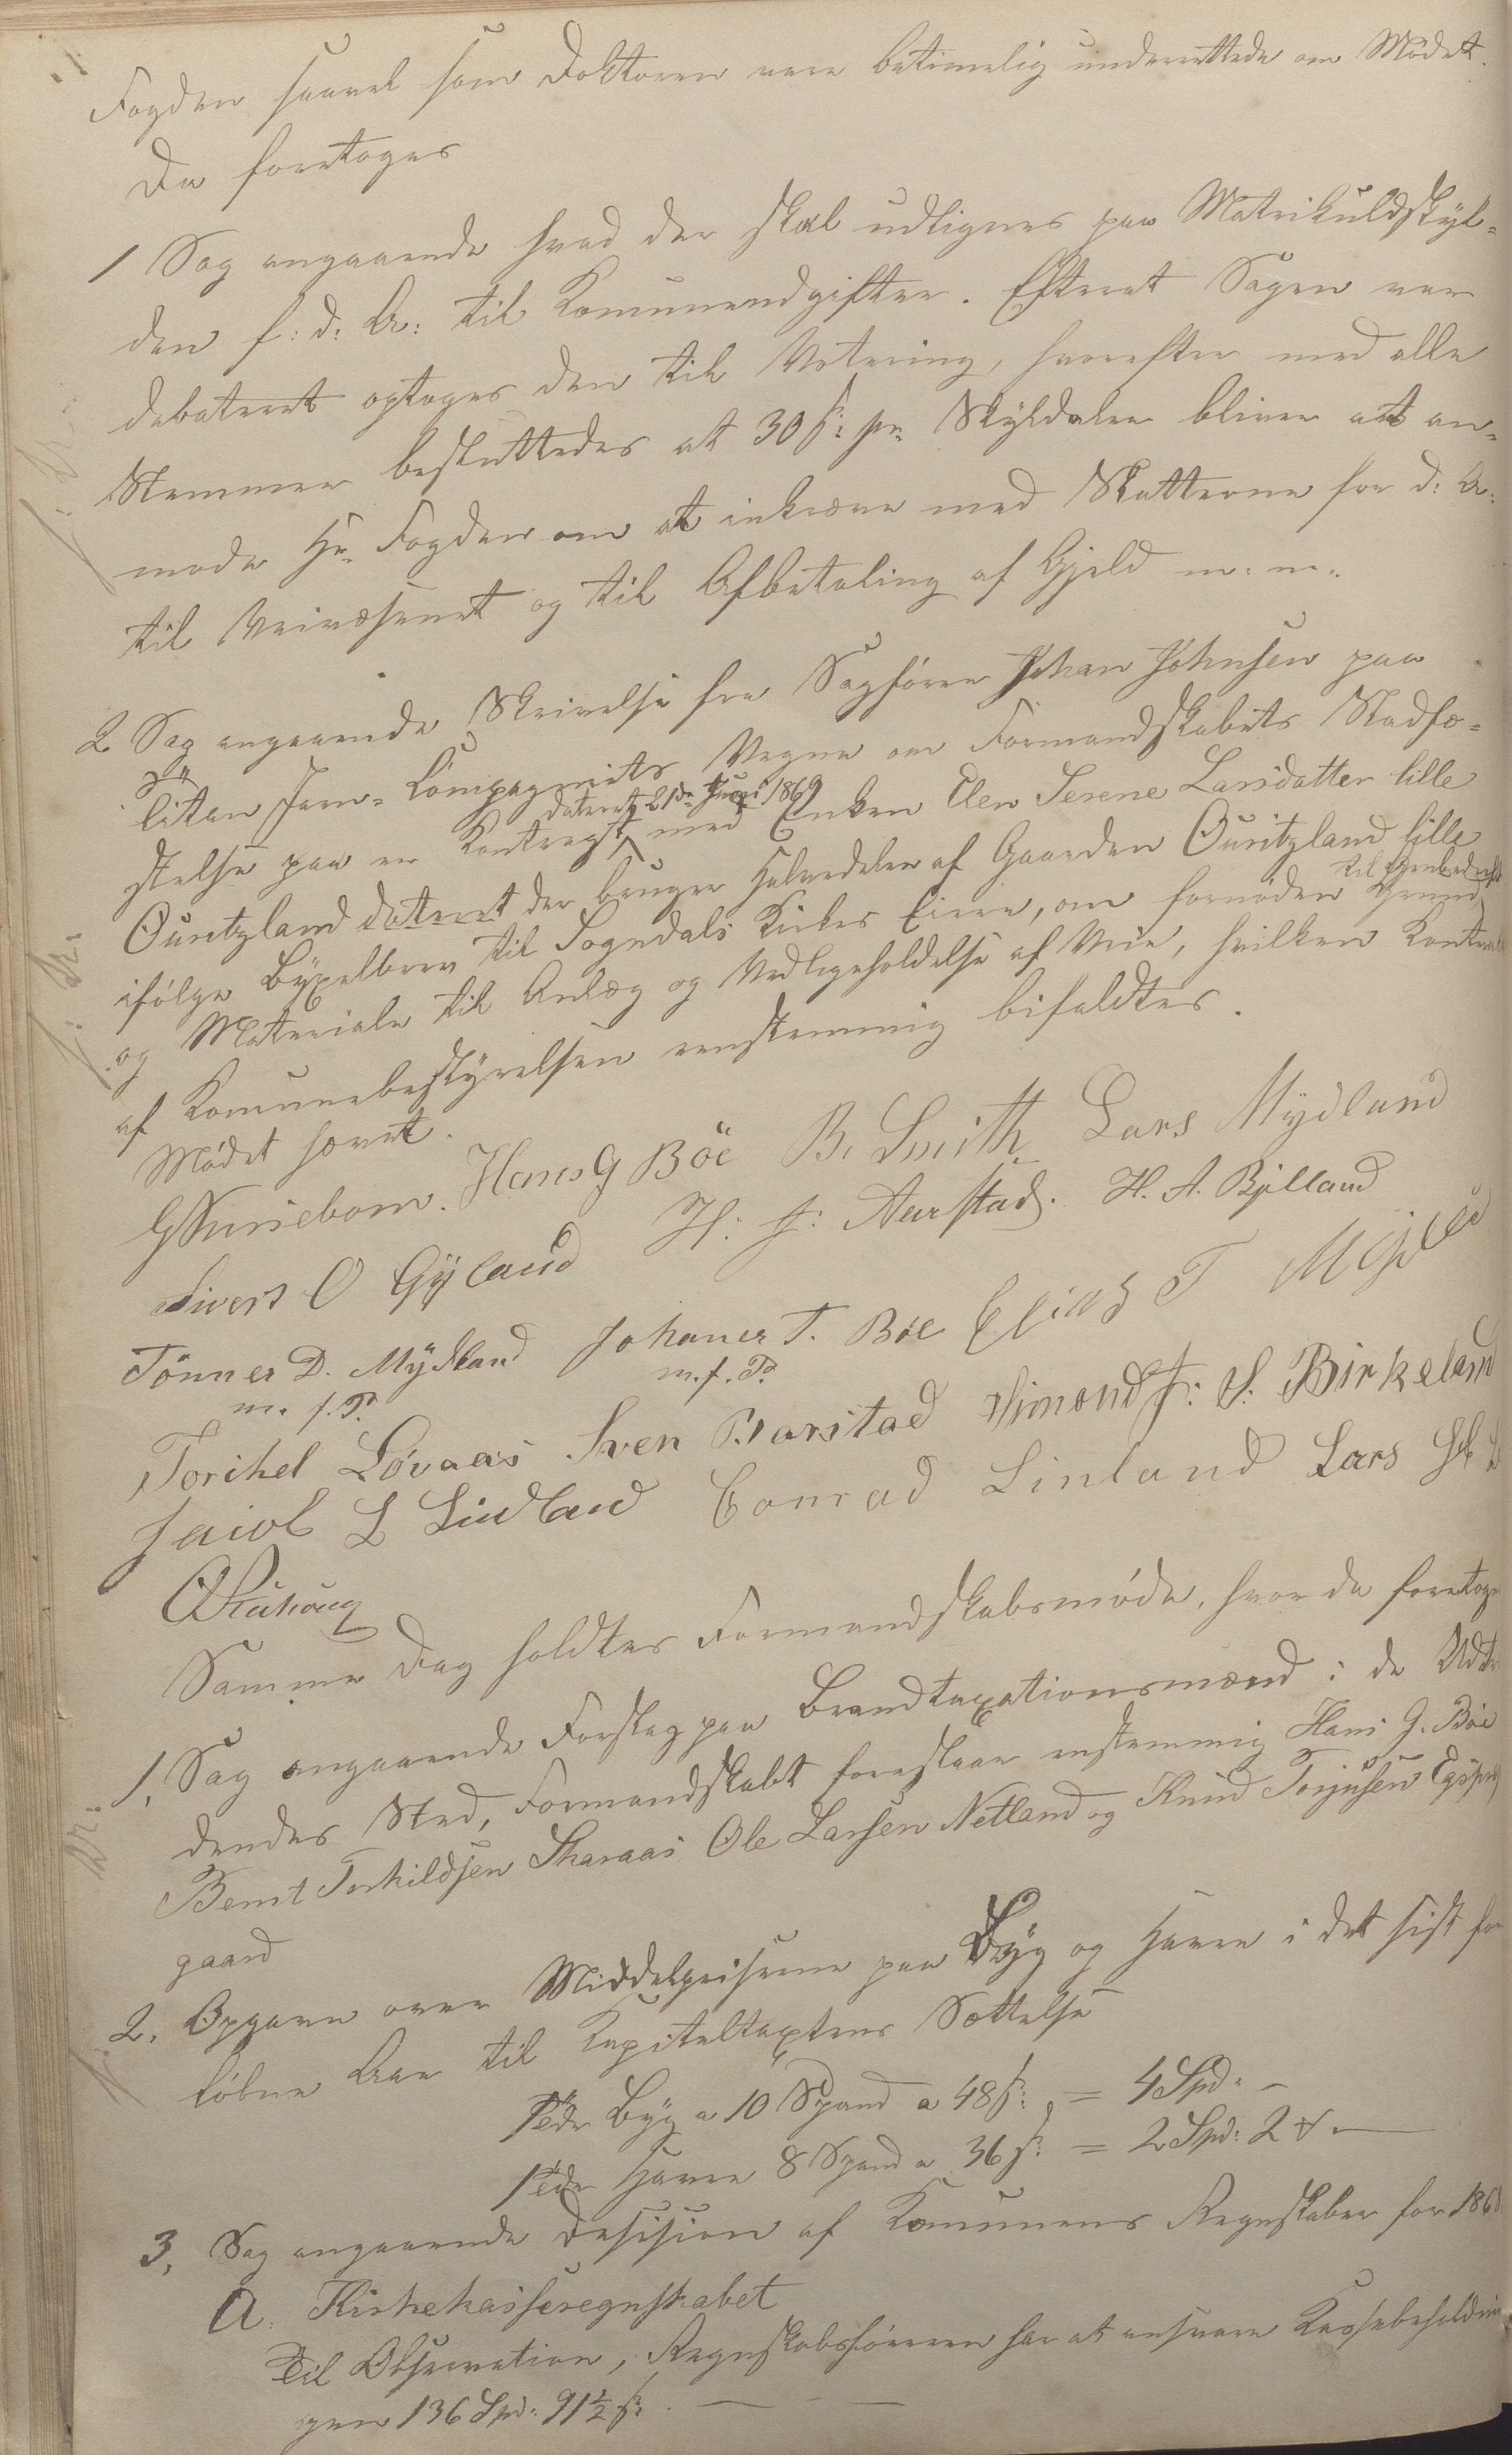 Fogden saavel som Doktoren vare betimelig underrettede om Mødet.
Da foretoges
1 Sag angaaende hvad der skal udlignes paa Matrikulskyl-
den f: d: A: til Komuneudgifter. Efterat Sagen var
debateret optoges den til Votering, hvorefter med alle
Stemmer besluttedes at 30 s: pr Skyldaler bliver at an-
mode Hr Fogden om at inkræve med Skatterne for d: A:
til Veivæsenet og til Afbetaling af Gjeld m: m:
2 Sag angaaende Skrivelse fra Sagfører Johan Johnsen paa
Titan Jern-Compagniets Vegne om Formandskabets Stadfæ-
stelse paa en Kontragt dateret 21de Juni 1869 med Enken Elen Serene Larsdatter lille
Øuritzland dateret der bruger Halvedelen af Gaarden Øuritzland lille
ifølge Bygselbrev til Sogndals Kirkes Eiere, om fornøden Grund til Grubedrift
og Materiale til Anlæg og Vedligeholdelse af Veie, hvilken Kontrakt
af Komunebestyrelsen eenstemmig bifaldtes.
Mødet hævet.
Hans G Böe B. Smith Lars Mydland
Sivert O Gyland H: J: Aarstad. H. A. Bjelland
Tönnes D. Mÿdland Johanes T. Böe Elias T
m. f. P. m. f. P.
Torikel Lövaas Sven Barstad Simond J: S: Birkeland
Jacob L Lindland Conrad Linland Lars
Samme Dag holdtes Formandskabsmøde, hvor da foretoges
1, Sag angaaende Forslag paa Brandtaxationsmænd i de
dendes Sted, Formandskabet foreslaar enstemmig Hans G. Böe
Bernt Torkildsen Skaraas Ole Larsen Netland og Knud Torjusen
gaard
2, Opgave over Middelpriserne paa Byg og Havre i det sist for
løbne Aar til Kapiteltaxtens Sættelse
1 Tde Byg a 10 Spand a 48 s: = 4 Spd: —
1 Tde Havre 8 Spand a 36 s: = 2 Spd: 2 —
3, Sag angaaende Desision af Komunens Regnskaber for 1868
A. Kirkekasseregnskabet
Til Observation, Regnskabsføreren har at ansvare Kassebeholdnin
gen 136 Spd: 91½ s: —